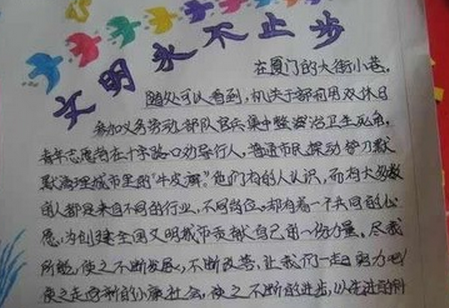 文明永不止步
在厦门的大街小巷,
随处可以看到,机关干部利用双休日
参加义务劳动,部队官兵集中整治卫生死角,
青年志愿者在十字路口劝导行人,普通市民 铲刀默
默清理城市里的"牛皮癣"。他们有的人认识,而有大多数
的人都是来自不同的行业,不同岗位。却有着一个共同的心
愿,为创建全国文明城市贡献自己的一份力量。尽我
所能,使之不断发展,不断改善,让我们一起努力吧!
使之走向新的小康社会,使之不断的进步,以先进的